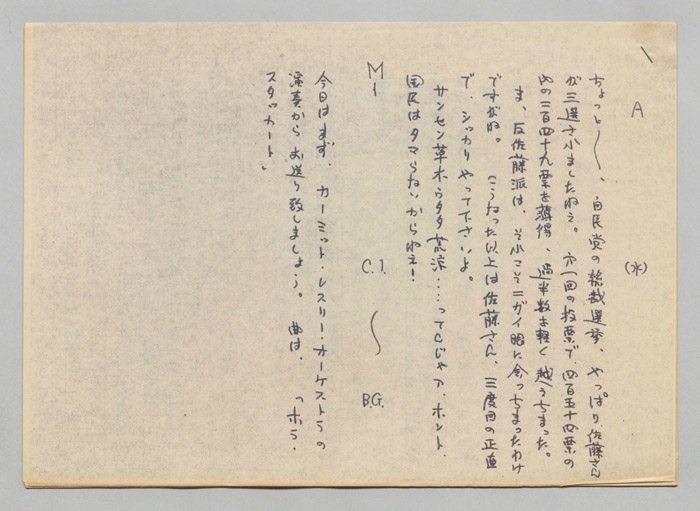 A (水)
ちょっと〜〜、自民党の総裁選挙、やっぱり佐藤さん
が三選されましたねえ。 第一回の投票で、四百五十四票の
内の二百四十九票を獲得、過半数を軽く越えちまった。
ま、反佐藤派は、それこそニガイ眼に会っちまったわけ
ですがね。 こうなった以上は佐藤さん、三度目の正直
で、シッカリやって下さいよ。
サンセン草木うタタ荒涼‥‥ってんじゃア、ホント、
国民はタマらないからねえ！
M1 C.I. 〜 B.G.
今日はまず、カーミット・レスリー・オーケストラの
演奏からお送り致しましょう。 曲は、「ホラ・
スタッカート」